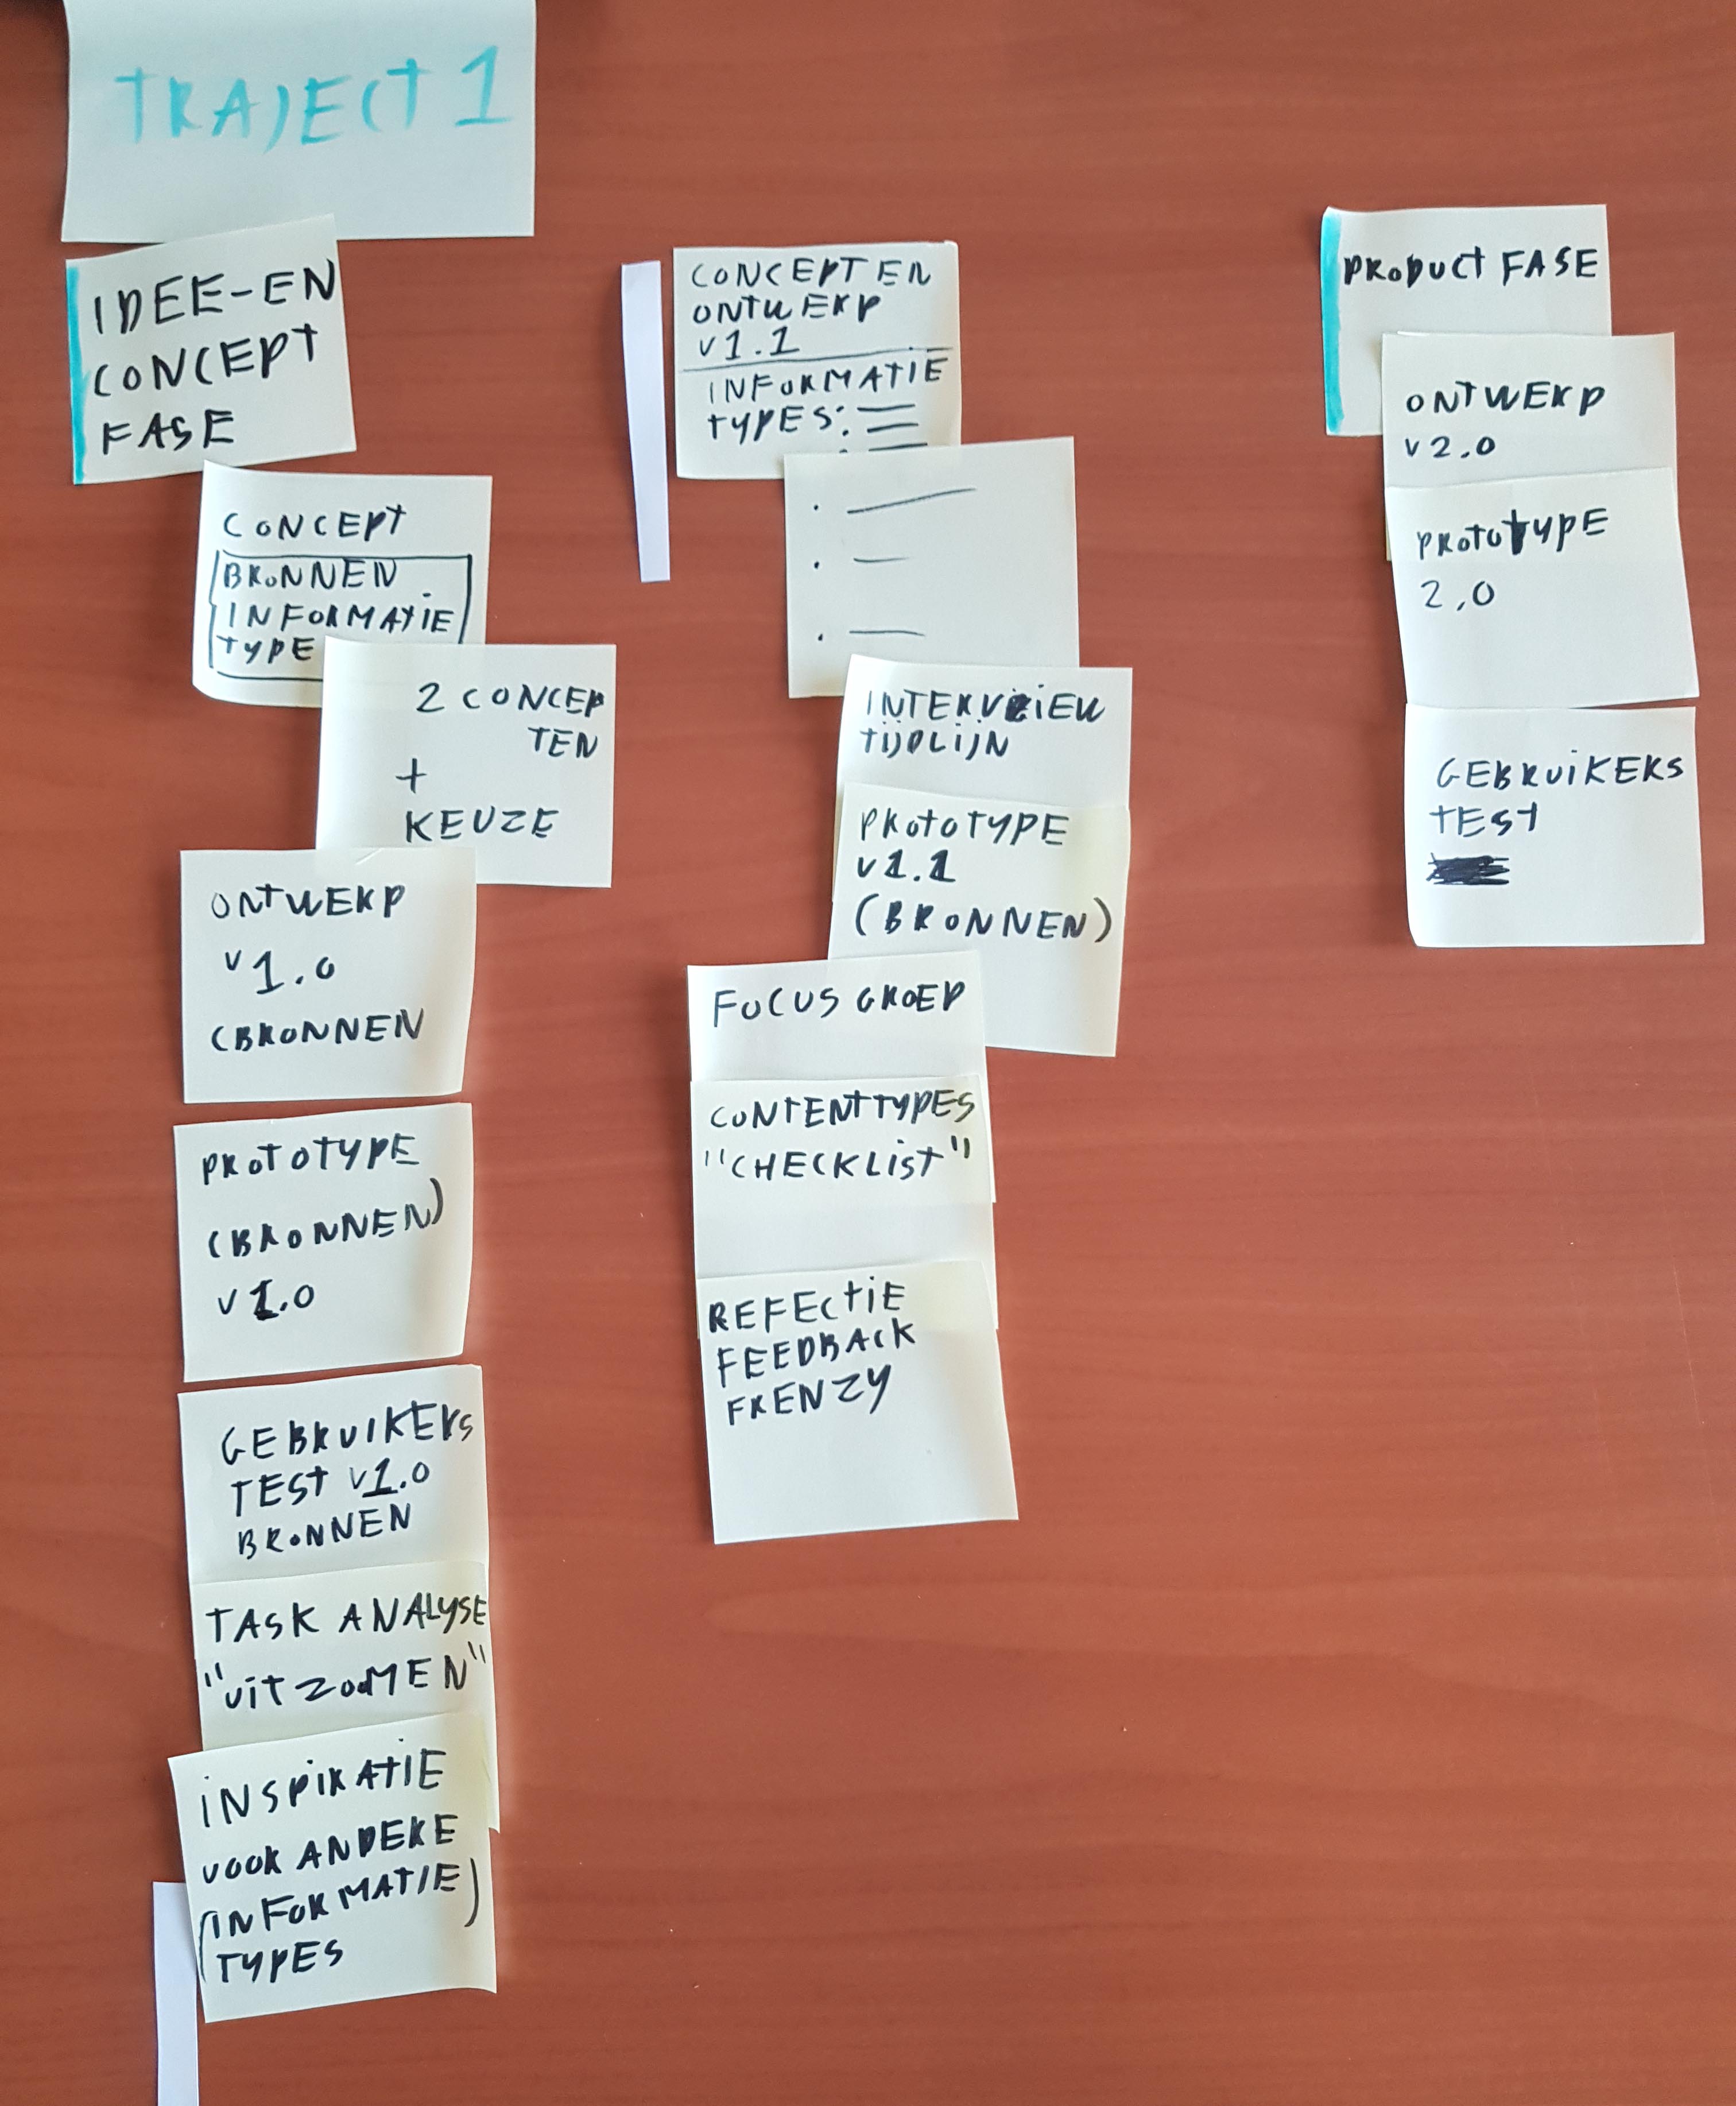 TRAJECT 1
IDEE-EN
CONCEPT
FASE
CONCEPT
BRONNEN
INFORMATIE
TYPE
2 CONCEP
TEN
+
KEUZE
ONTWERP
v 1.0
(BRONNEN
PROTOTYPE
(BRONNEN)
v 1.0
GEBRUIKERS
TEST v1.0
BRONNEN
TASK ANALYSE
"UITZOOMEN"
INSPIRATIE
VOOR ANDERE
(INFORMATIE)
TYPES
CONCEPT EN
ONTWERP
v 1.1
INFORMATIE
TYPES:
INTERVIEW
TIJDLIJN
PROTOTYPE
v1.1
(BRONNEN)
FOCUS GROEP
CONTENTTYPES
"CHECKLIST"
REFECTIE
FEEDBACK
FRENZY
PRODUCT FASE
ONTWERP
v 2.0
PROTOTYPE
2,0
GEBRUIKERS
TEST